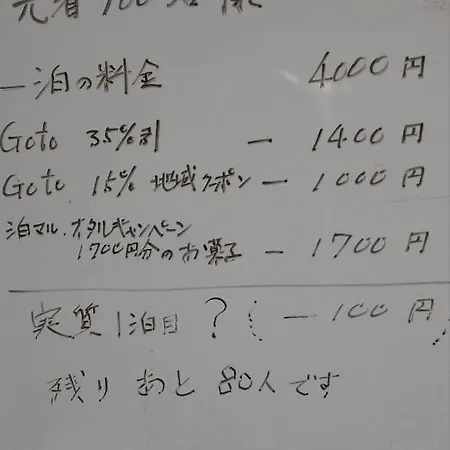 先着100名様
一泊の料金 4000円
Goto 35%割 - 1400円
Goto 15% 地域クーポン - 1000円
泊マル.オタルキャンペーン
1700円分のお菓子 - 1700円
実質1泊目? (-100円)
残り あと 80人です